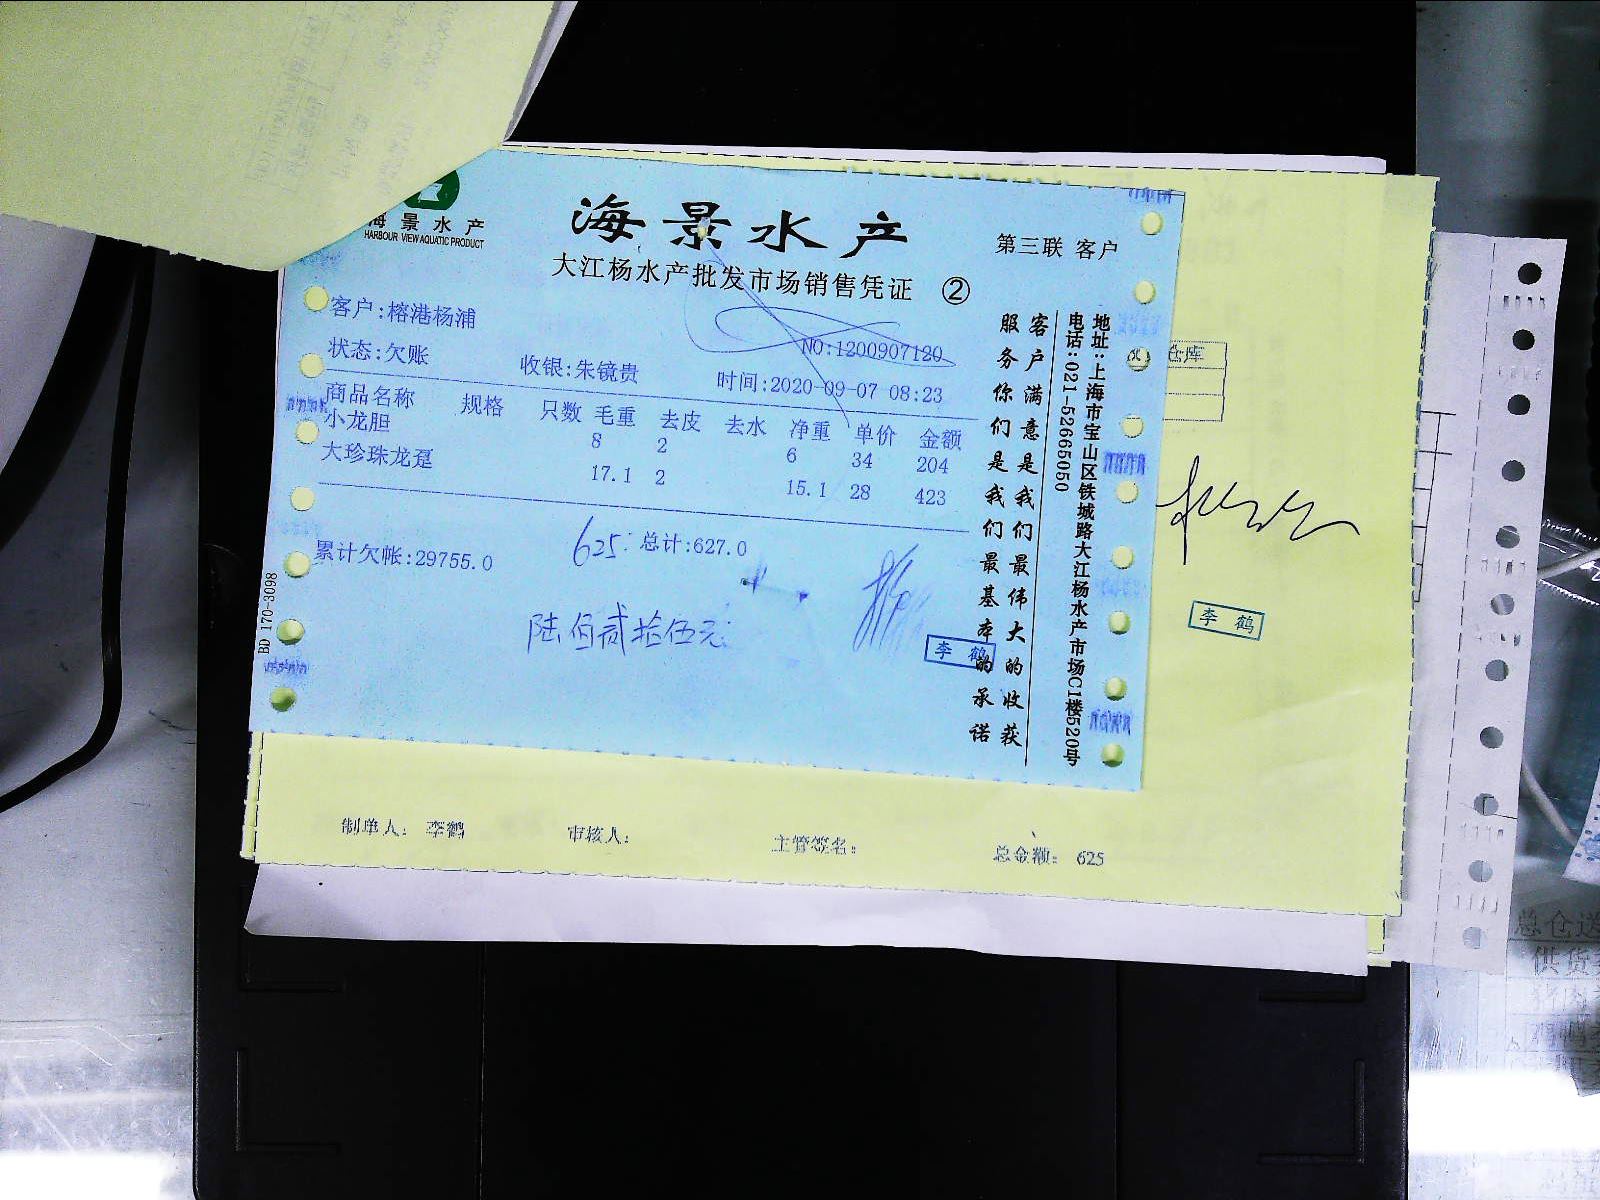 海景水产
HARBOUR VIEW AQUATIC PRODUCT
海景水产
第三联 客户
大江杨水产批发市场销售凭证 ②
客户:榕港杨浦
NO:1200907120
状态:欠账 收银:朱镜贵 时间:2020-09-07 08:23
商品名称 规格 只数 毛重 去皮 去水 净重 单价 金额
小龙胆 8 2 6 34 204
大珍珠龙趸 17.1 2 15.1 28 423
累计欠帐:29755.0 625. 总计:627.0
陆佰贰拾伍元
李鹤
BD 170-3098
客户满意是我们最伟大的收获
服务你们是我们最基本的承诺
地址:上海市宝山区铁城路大江杨水产市场C1楼520号
电话:021-52665050
仓库
李鹤
制单人: 李鹤 审核人: 主管签名: 总金额: 625
总仓送
供货